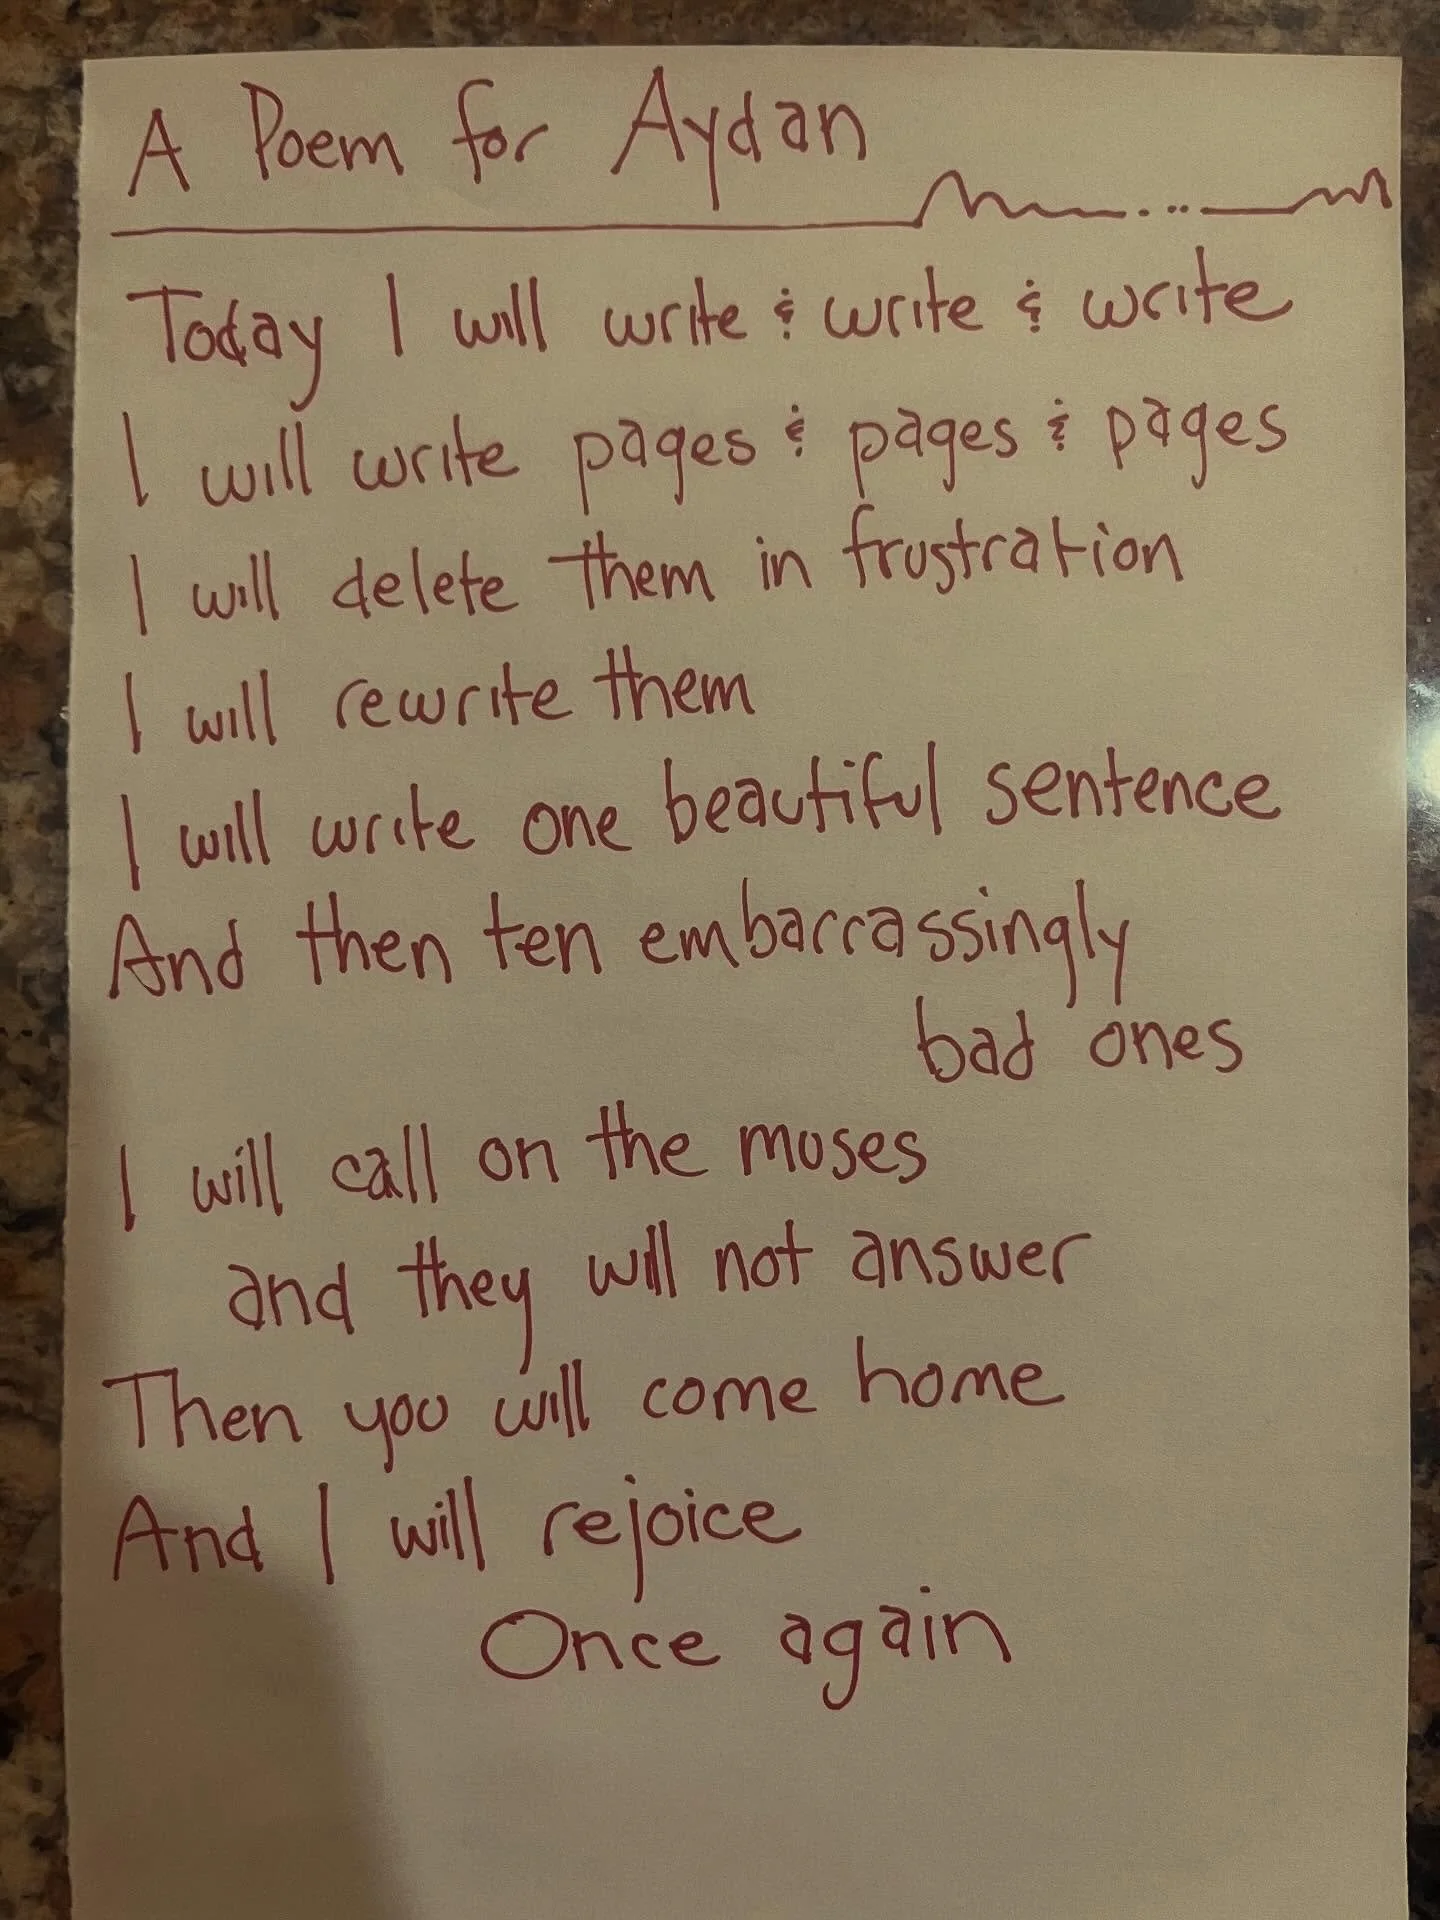 A Poem for Aydan
Today I will write & write & write
I will write pages & pages & pages
I will delete them in frustration
I will rewrite them
I will write one beautiful sentence
And then ten embarrassingly
bad ones
I will call on the muses
and they will not answer
Then you will come home
And I will rejoice
Once again